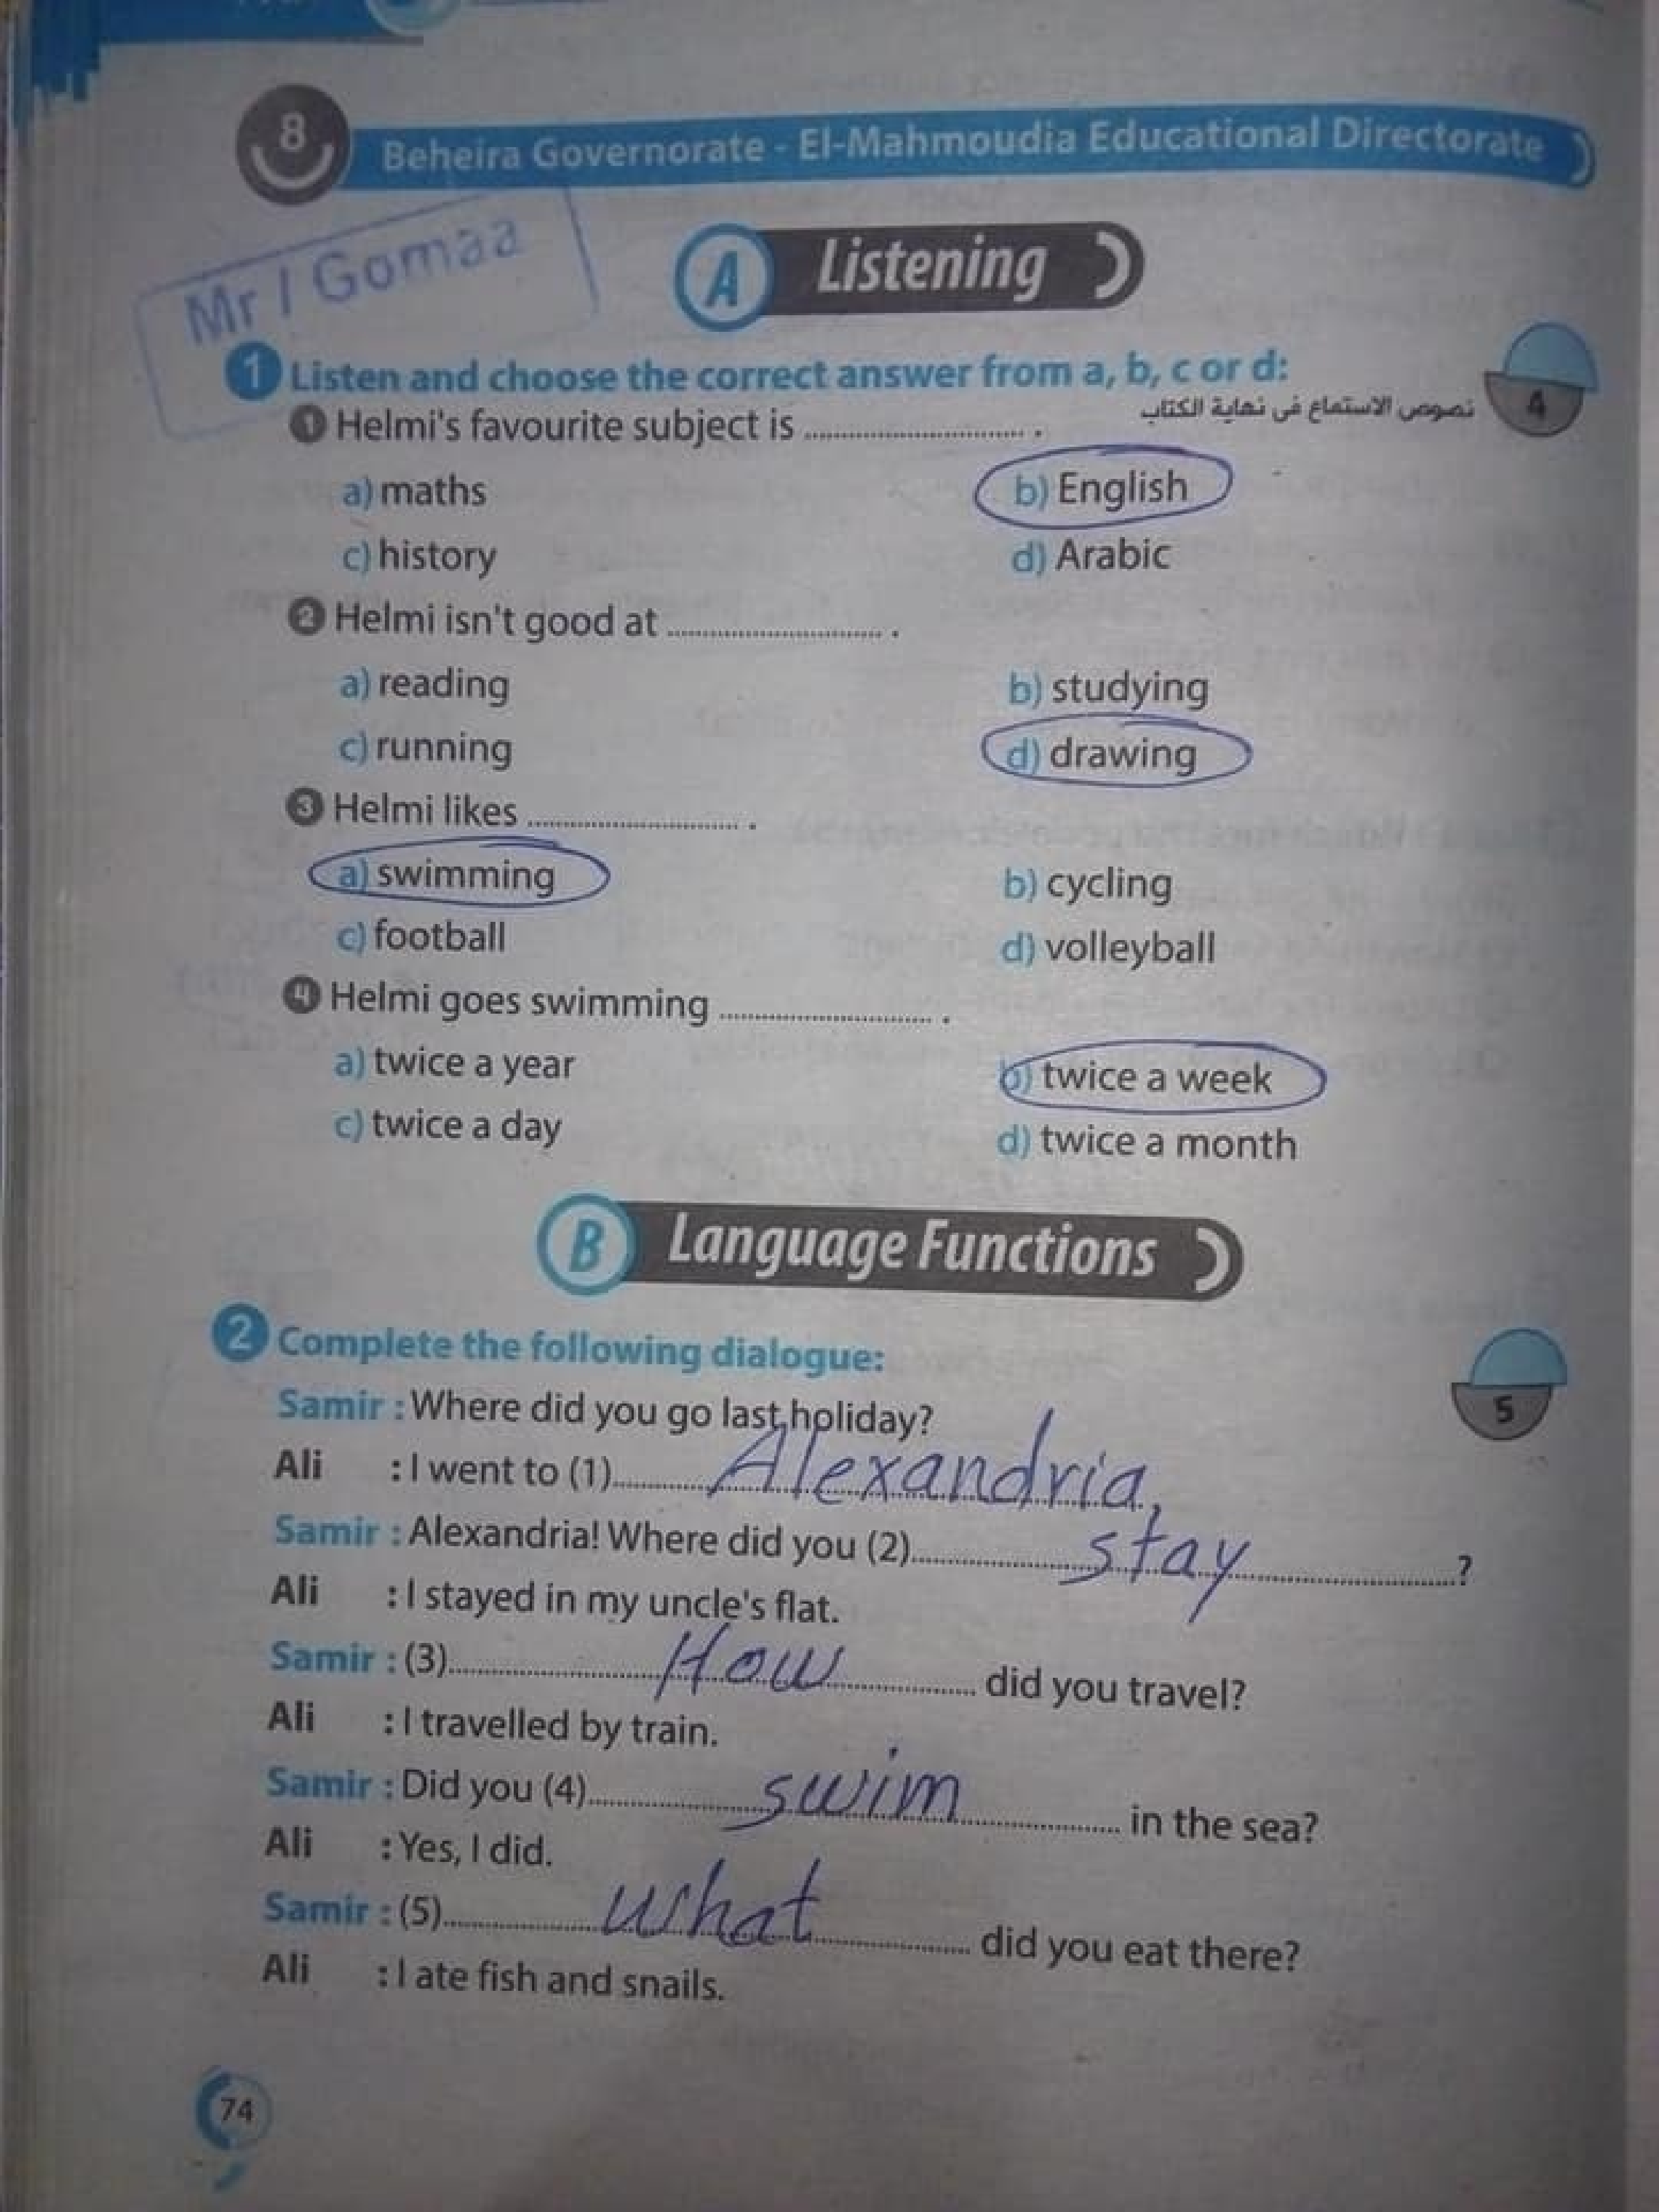 8
Beheira Governorate - El-Mahmoudia Educational Directorate
Mr / Gomaa
A Listening
1 Listen and choose the correct answer from a, b, c or d:
4
نصوص الاستماع فى نهاية الكتاب
1 Helmi's favourite subject is .............................. .
a) maths b) English
c) history d) Arabic
2 Helmi isn't good at .............................. .
a) reading b) studying
c) running d) drawing
3 Helmi likes .............................. .
a) swimming b) cycling
c) football d) volleyball
4 Helmi goes swimming .............................. .
a) twice a year b) twice a week
c) twice a day d) twice a month
B Language Functions
2 Complete the following dialogue:
5
Samir : Where did you go last holiday?
Ali : I went to (1) Alexandria.
Samir : Alexandria! Where did you (2) stay ?
Ali : I stayed in my uncle's flat.
Samir : (3) How did you travel?
Ali : I travelled by train.
Samir : Did you (4) swim in the sea?
Ali : Yes, I did.
Samir : (5) what did you eat there?
Ali : I ate fish and snails.
74